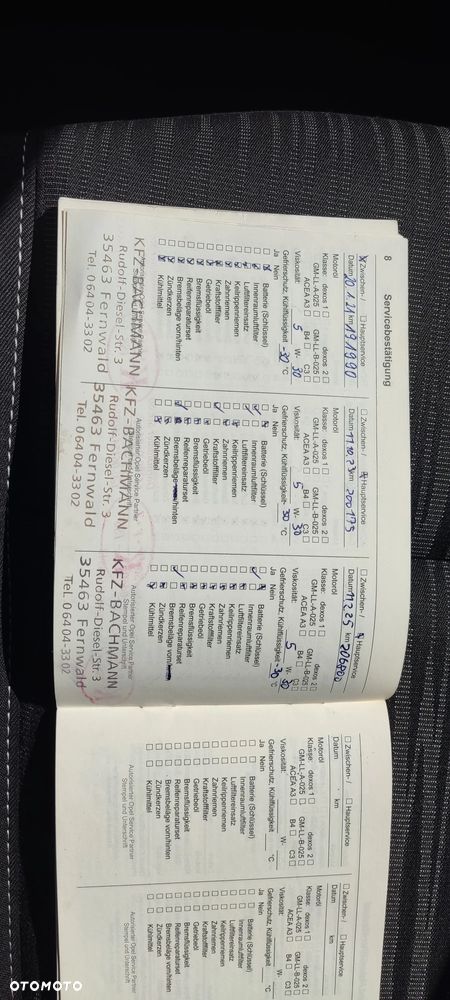 8 Servicebestätigung
Zwischen-/ Hauptservice
Datum 20.1.21 km 191990
Motoröl
Klasse: dexos 1 dexos 2
GM-LL-A-025 GM-LL-B-025
ACEA A3 B4 C3
Viskosität: 5 W- 30
Gefrierschutz, Kühlflüssigkeit -30 °C
Ja Nein
Batterie (Schlüssel)
Innenraumluftfilter
Luftfiltereinsatz
Keilrippenriemen
Zahnriemen
Kraftstofffilter
Getriebeöl
Bremsflüssigkeit
Reifenreparaturset
Bremsbeläge vorn/hinten
Zündkerzen
Kühlmittel
KFZ-BACHMANN
Rudolf-Diesel-Str. 3
35463 Fernwald
Tel. 06404-3302
Zwischen-/ Hauptservice
Datum 11.10.23 km 200175
Motoröl
Klasse: dexos 1 dexos 2
GM-LL-A-025 GM-LL-B-025
ACEA A3 B4 C3
Viskosität: 5 W- 30
Gefrierschutz, Kühlflüssigkeit -30 °C
Ja Nein
Batterie (Schlüssel)
Innenraumluftfilter
Luftfiltereinsatz
Keilrippenriemen
Zahnriemen
Kraftstofffilter
Getriebeöl
Bremsflüssigkeit
Reifenreparaturset
Bremsbeläge /hinten
Zündkerzen
Kühlmittel
Autorisierter Opel Service Partner
KFZ-BACHMANN
Rudolf-Diesel-Str. 3
35463 Fernwald
Tel. 06404-3302
Zwischen-/ Hauptservice
Datum km 206800
Motoröl
Klasse: dexos 1 dexos 2
GM-LL-A-025 GM-LL-B-025
ACEA A3 B4 C3
Viskosität: 5 W- 30
Gefrierschutz, Kühlflüssigkeit -30 °C
Ja Nein
Batterie (Schlüssel)
Innenraumluftfilter
Luftfiltereinsatz
Keilrippenriemen
Zahnriemen
Kraftstofffilter
Getriebeöl
Bremsflüssigkeit
Reifenreparaturset
Bremsbeläge vorn/
Zündkerzen
Kühlmittel
Autorisierter Opel Service Partner
Stempel und Unterschrift
KFZ-BACHMANN
Rudolf-Diesel-Str. 3
35463 Fernwald
Tel. 06404-3302
Zwischen-/ Hauptservice
Datum km
Motoröl
Klasse: dexos 1 dexos 2
GM-LL-A-025 GM-LL-B-025
ACEA A3 B4 C3
Viskosität: W-
Gefrierschutz, Kühlflüssigkeit °C
Ja Nein
Batterie (Schlüssel)
Innenraumluftfilter
Luftfiltereinsatz
Keilrippenriemen
Zahnriemen
Kraftstofffilter
Getriebeöl
Bremsflüssigkeit
Reifenreparaturset
Bremsbeläge vorn/hinten
Zündkerzen
Kühlmittel
Autorisierter Opel Service Partner
Stempel und Unterschrift
Zwischen-/ Hauptservice
Datum km
Motoröl
Klasse: dexos 1 dexos 2
GM-LL-A-025 GM-LL-B-025
ACEA A3 B4 C3
Viskosität: W-
Gefrierschutz, Kühlflüssigkeit °C
Ja Nein
Batterie (Schlüssel)
Innenraumluftfilter
Luftfiltereinsatz
Keilrippenriemen
Zahnriemen
Kraftstofffilter
Getriebeöl
Bremsflüssigkeit
Reifenreparaturset
Bremsbeläge vorn/hinten
Zündkerzen
Kühlmittel
Autorisierter Opel Service Partner
Stempel und Unterschrift
OTOMOTO